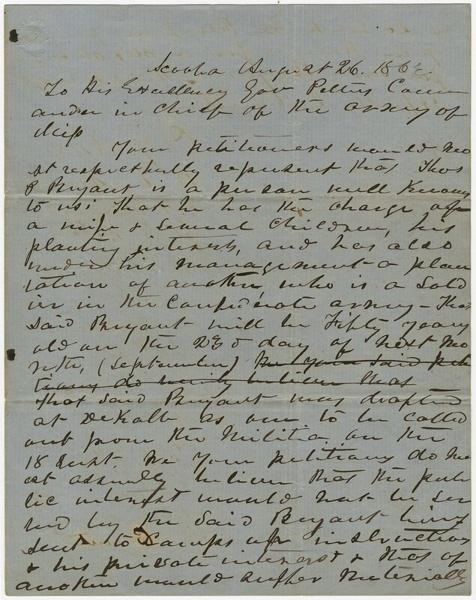 Scooba August 26. 186
To His Excellency Gov Pettus Comm
ander in Chief of the army of
Miss
Your petitioners would mo
st respectfully represent that Thos
P Bryant is a person well known
to us: That he has the charge of
a wife & several children, his
planting interest, and has also
under his management a plan
tation of another who is a Sold
ier in the Confederate army - The
said Bryant will be Fifty years
old on the 23d day of next Mo
nth, (September) We your said peti
tioners do verily believe that
that said Bryant was drafted
at DeKalb as one to be called
out from the Militia on the
18 inst. We your petitions do mo
st assuredly believe that the pub
lic interest would not be ser
ved by the said Bryant being
sent to Camps of instruction
& his private interest & that of
another would suffer materially